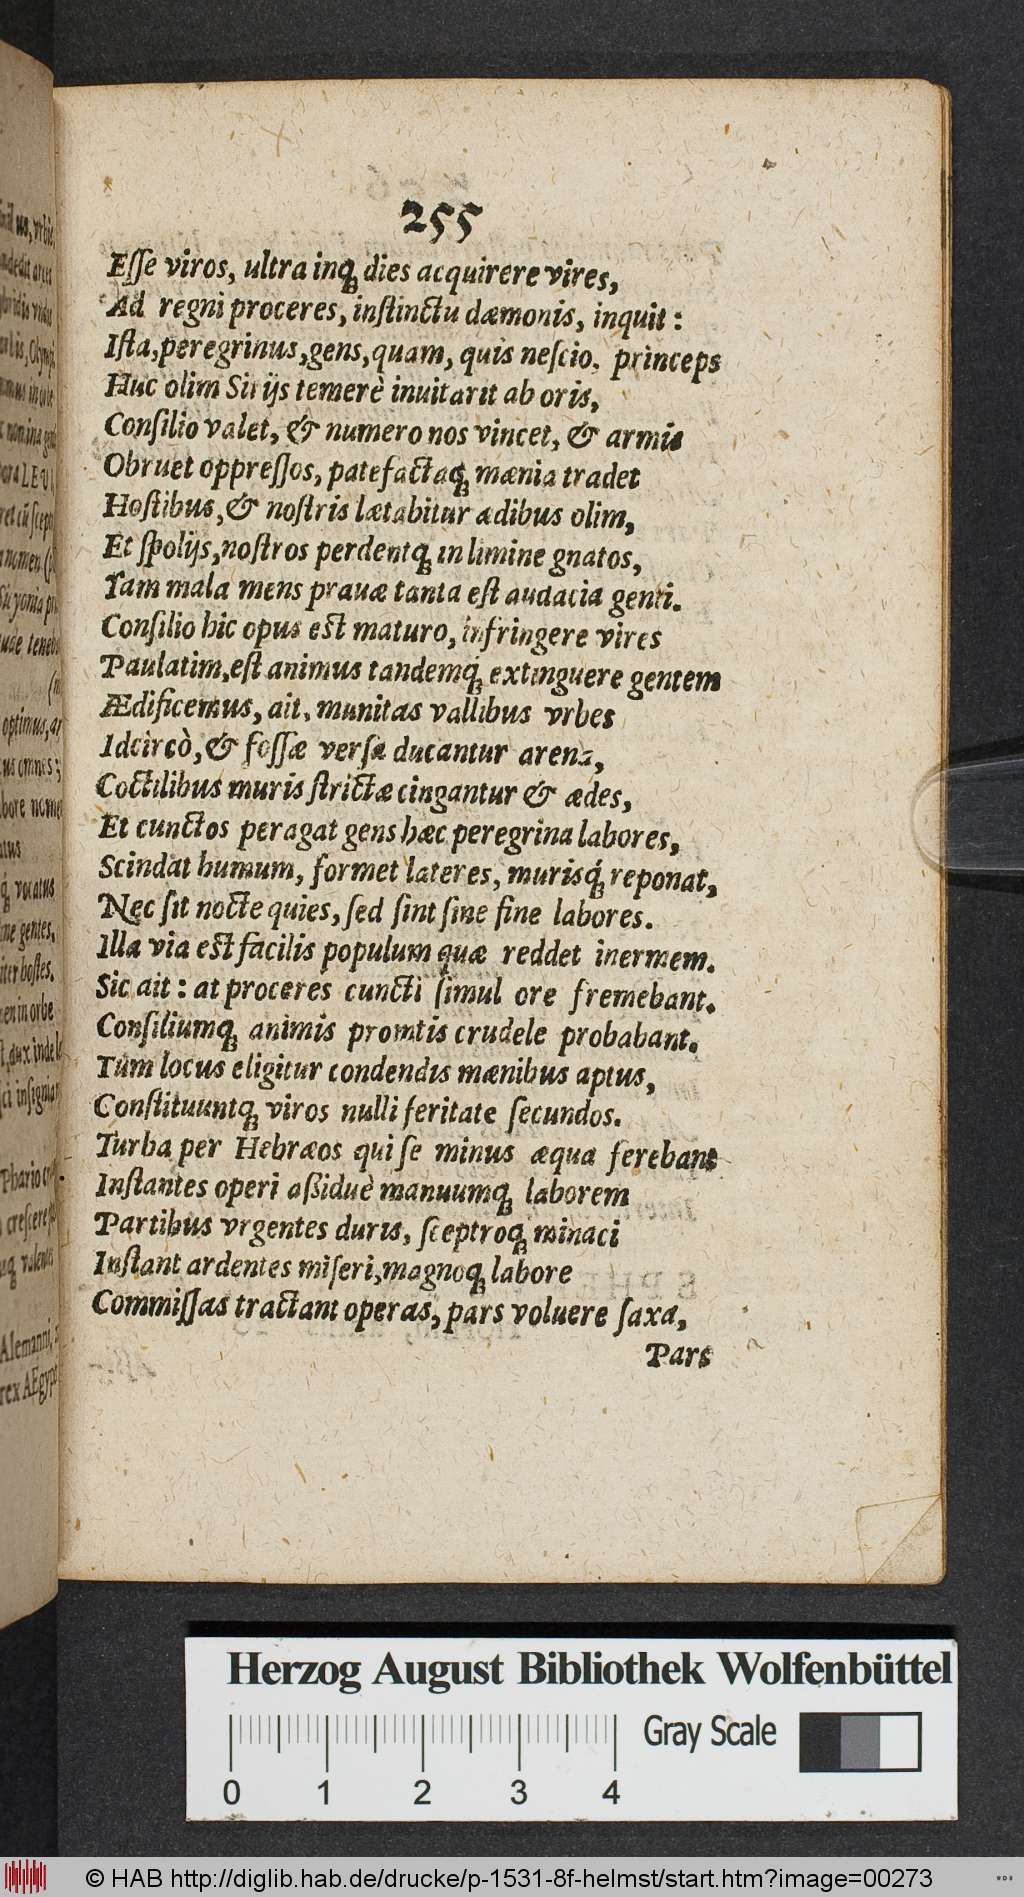 255
Eſſe viros, ultra inq́; dies acquirere vires,
Ad regni proceres, inſtinctu dæmonis, inquit:
Iſta, peregrinus, gens, quam, quis neſcio, princeps
Huc olim Sirijs temerè inuitarit ab oris,
Conſilio valet, & numero nos vincet, & armis
Obruet oppreſſos, patefactaq; mænia tradet
Hoſtibus, & noſtris lætabitur ædibus olim,
Et ſpolijs, noſtros perdentq; in limine gnatos,
Tam mala mens prauæ tanta eſt audacia genti.
Conſilio hic opus eſt maturo, infringere vires
Paulatim, eſt animus tandemq́; extinguere gentem
Ædificemus, ait, munitas vallibus vrbes
Idcircò, & foſſæ verſæ ducantur arena,
Coctilibus muris ſtrictæ cingantur & ædes,
Et cunctos peragat gens hæc peregrina labores,
Scindat humum, formet lateres, murisq́; reponat,
Nec ſit nocte quies, ſed ſint ſine fine labores.
Illa via eſt facilis populum quæ reddet inermem.
Sic ait: at proceres cuncti ſimul ore fremebant.
Conſiliumq; animis promtis crudele probabant.
Tùm locus eligitur condendis mænibus aptus,
Conſtituuntq; viros nulli feritate ſecundos.
Turba per Hebræos qui ſe minus æqua ferebant
Inſtantes operi aßiduè manuumq; laborem
Partibus vrgentes duris, ſceptroq; minaci
Inſtant ardentes miſeri, magnoq; labore
Commiſſas tractant operas, pars voluere ſaxa,
Pars
Herzog August Bibliothek Wolfenbüttel
Gray Scale
0 1 2 3 4
© HAB http://diglib.hab.de/drucke/p-1531-8f-helmst/start.htm?image=00273